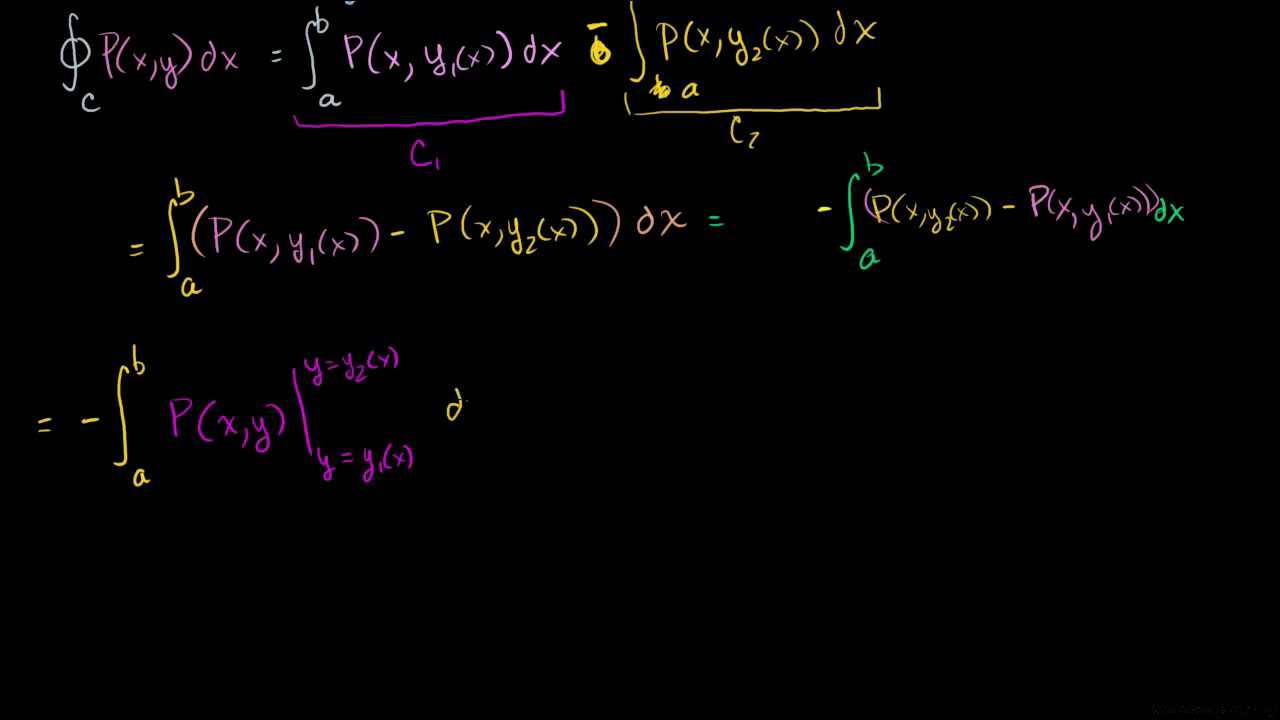 ∮_C P(x,y) dx = ∫_a^b P(x, y₁(x)) dx - ∫_a P(x, y₂(x)) dx
C₁ C₂
= ∫_a^b (P(x, y₁(x)) - P(x, y₂(x))) dx = - ∫_a^b (P(x, y₂(x)) - P(x, y₁(x))) dx
= - ∫_a^b P(x,y) |_{y = y₁(x)}^{y = y₂(x)} d